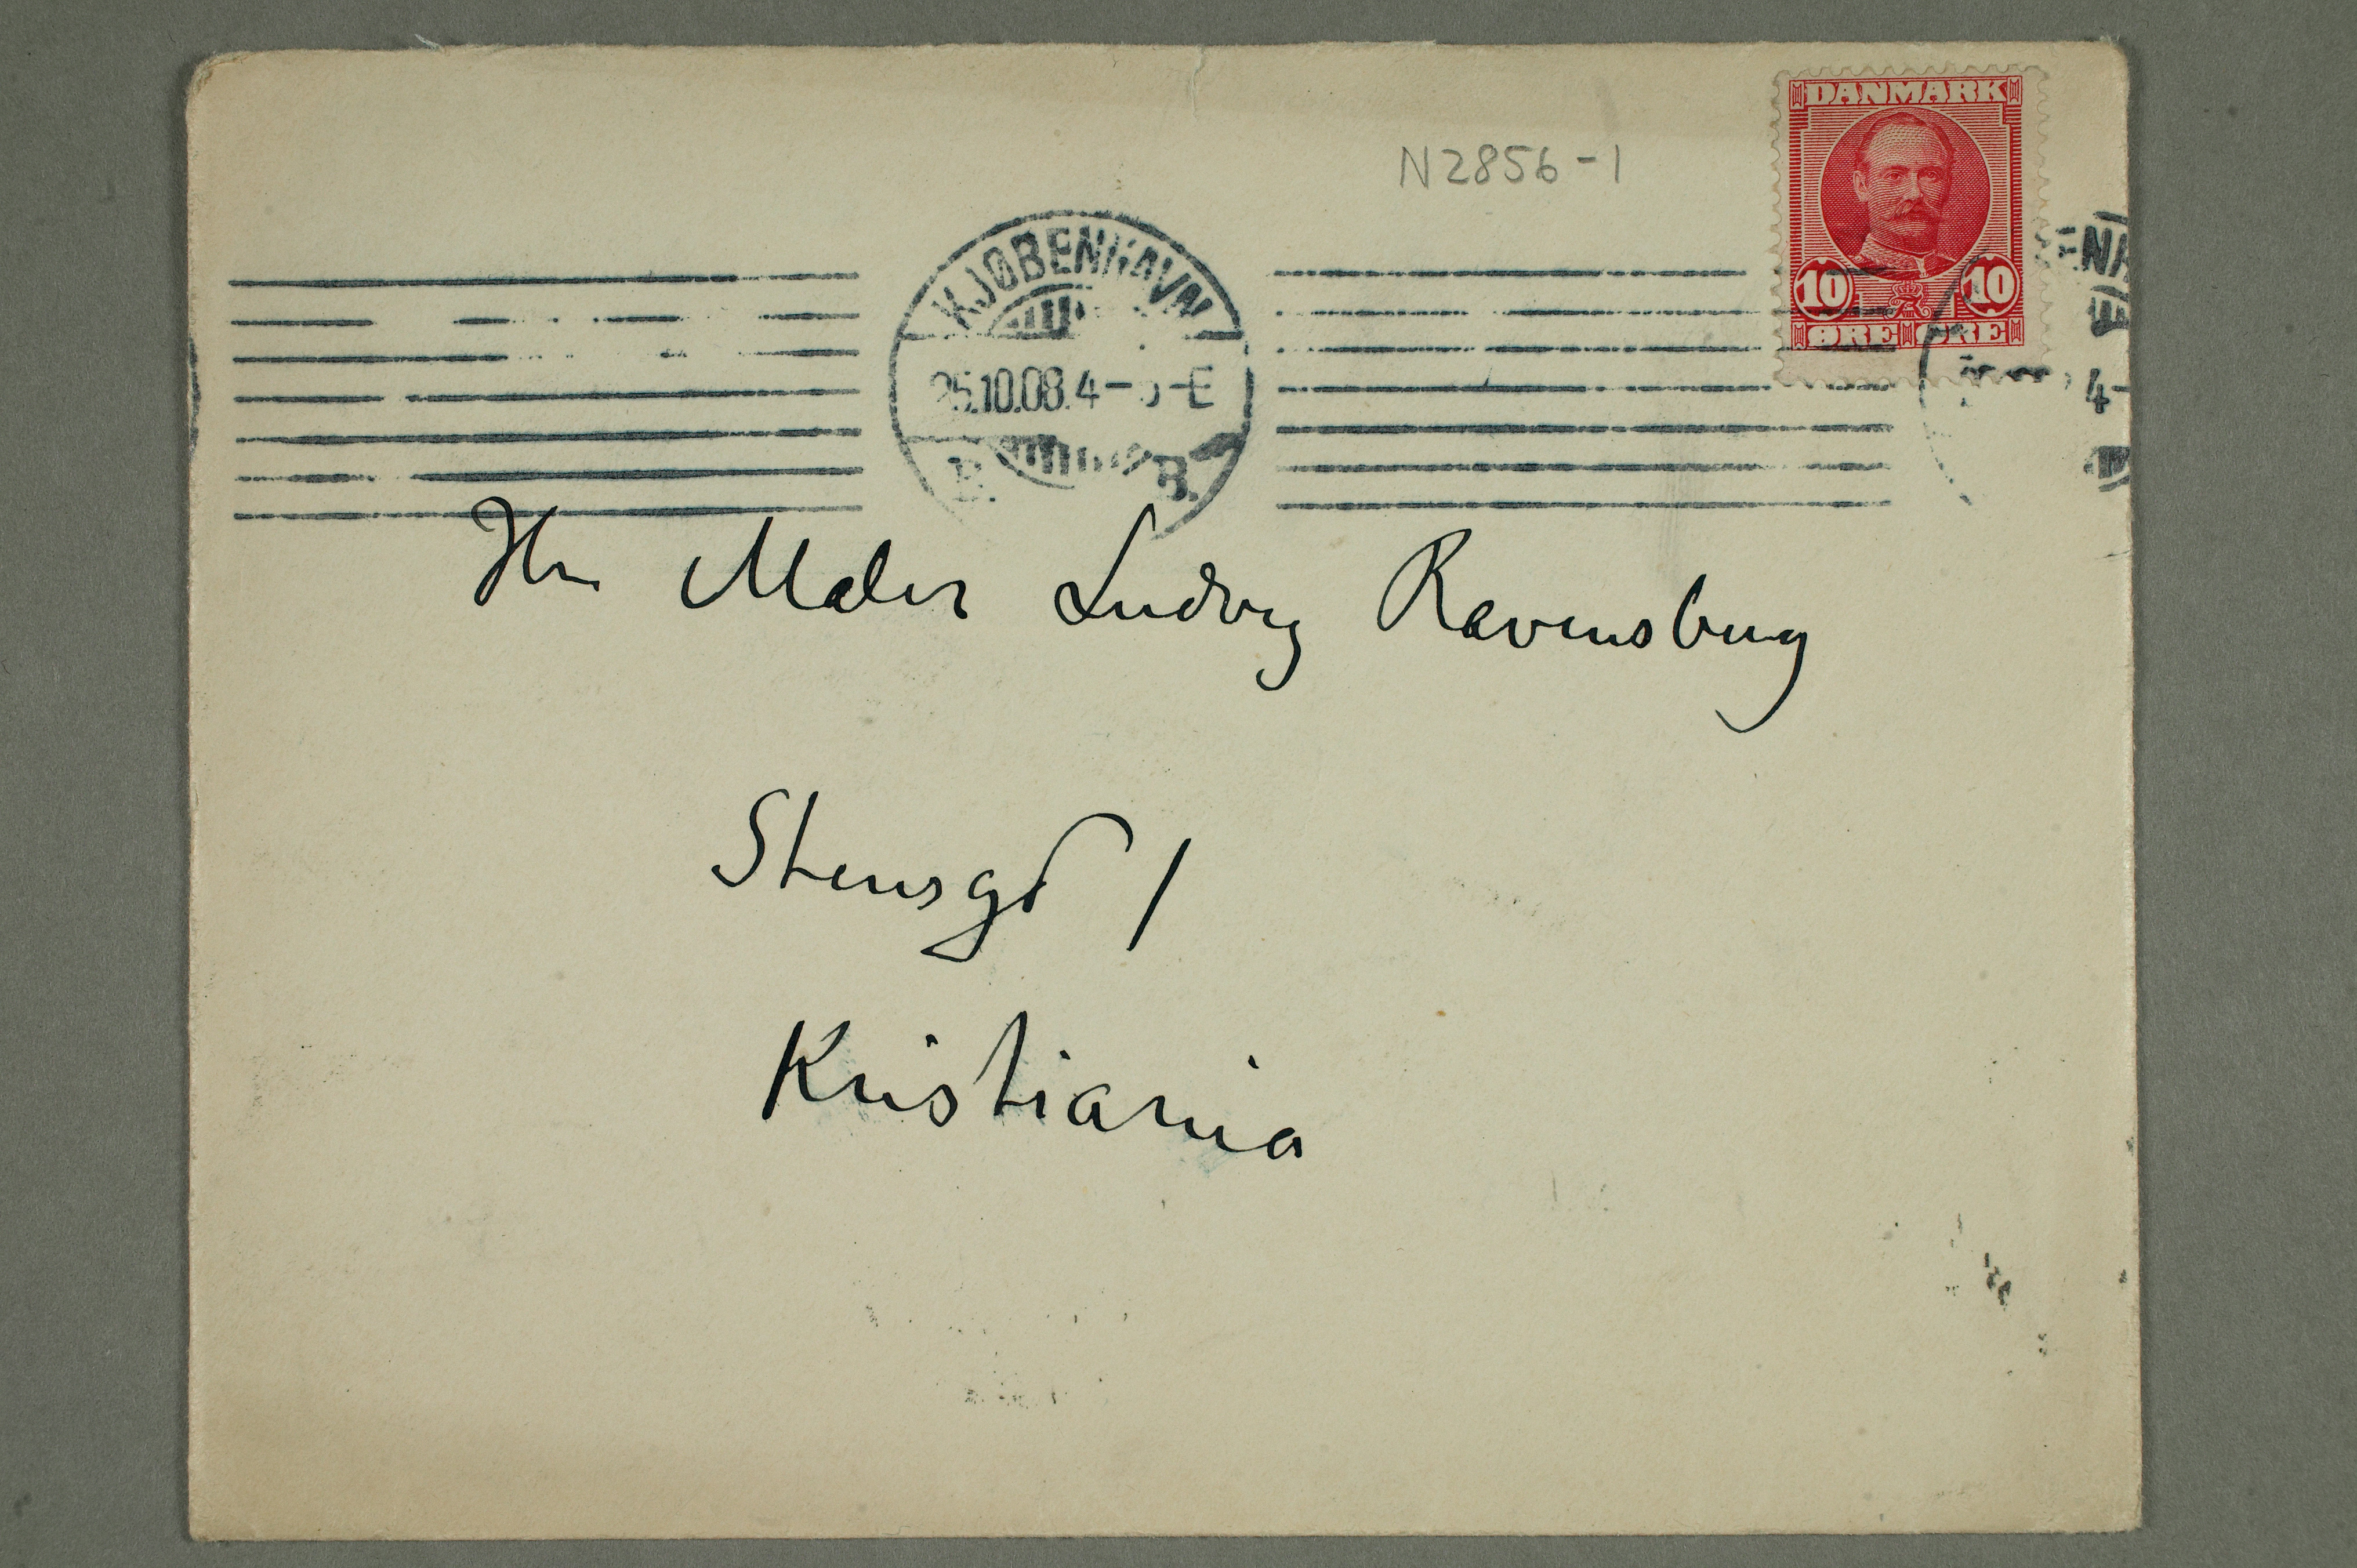 DANMARK
10 10
ØRE ØRE
N2856-1
KJØBENHAVN
25.10.08.4-5-E
B.
Hr Maler Ludvig Ravensberg
Stensgd 1
Kristiania